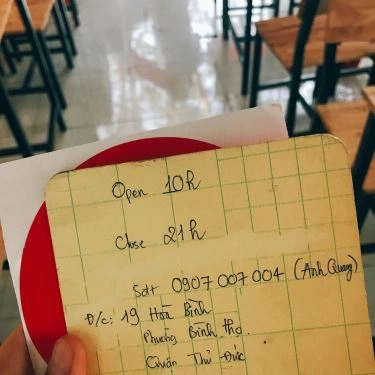 Open 10h
Close 21h
Sdt 0907 007 004 (Anh Quang)
Đ/c: 19 Hòa Bình
Phường Bình thọ.
Quận Thủ Đức